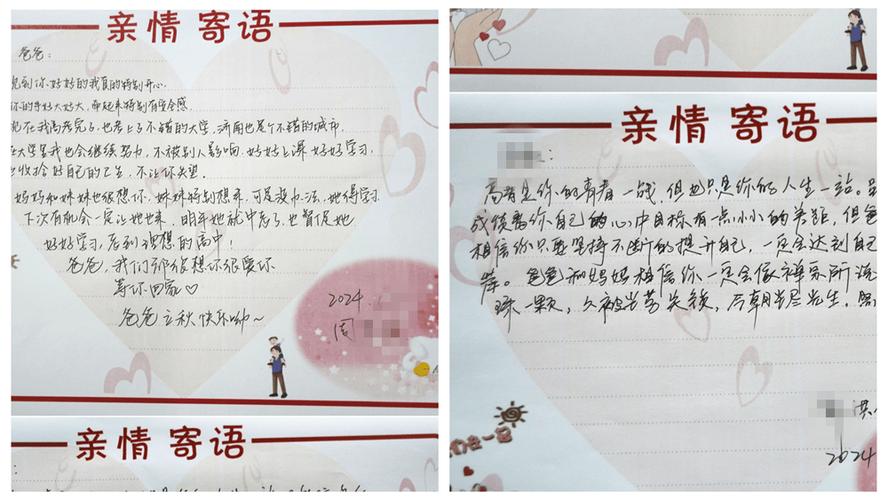 亲情 寄语
爸爸：
见到你好好的我真的特别开心
你的手好大好大，牵起来特别有安全感
现在我高考完了，也考上了不错的大学，济南也是个不错的城市，
在大学里我也会继续努力，不被别人影响，好好上课，好好学习，
也收拾好自己的卫生，不让你失望。
妈妈和妹妹也很想你，妹妹特别想来，可是没办法，她得学习
下次有机会一定让她也来，明年她就中考了，也督促她
好好学习，考到理想的高中！
爸爸，我们都很想你很爱你
等你回家♡
爸爸立秋快乐呦～
2024
周
亲情 寄语
亲情 寄语
：
高考是你的青春一战，但也只是你的人生一站。虽
成绩离你自己的心中目标有一点小小的差距，但爸
相信你只要坚持不断的提升自己，一定会达到自己
爸爸和妈妈相信你一定会像禅宗所说
珠一颗，久被尘劳关锁，今朝尘尽光生，照
洪
2024
们在一起